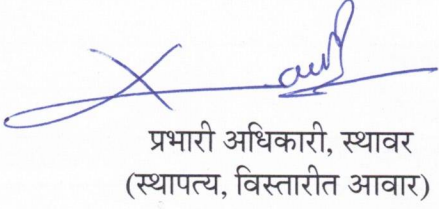 प्रभारी अधिकारी, स्थावर
(स्थापत्य, विस्तारीत आवार)